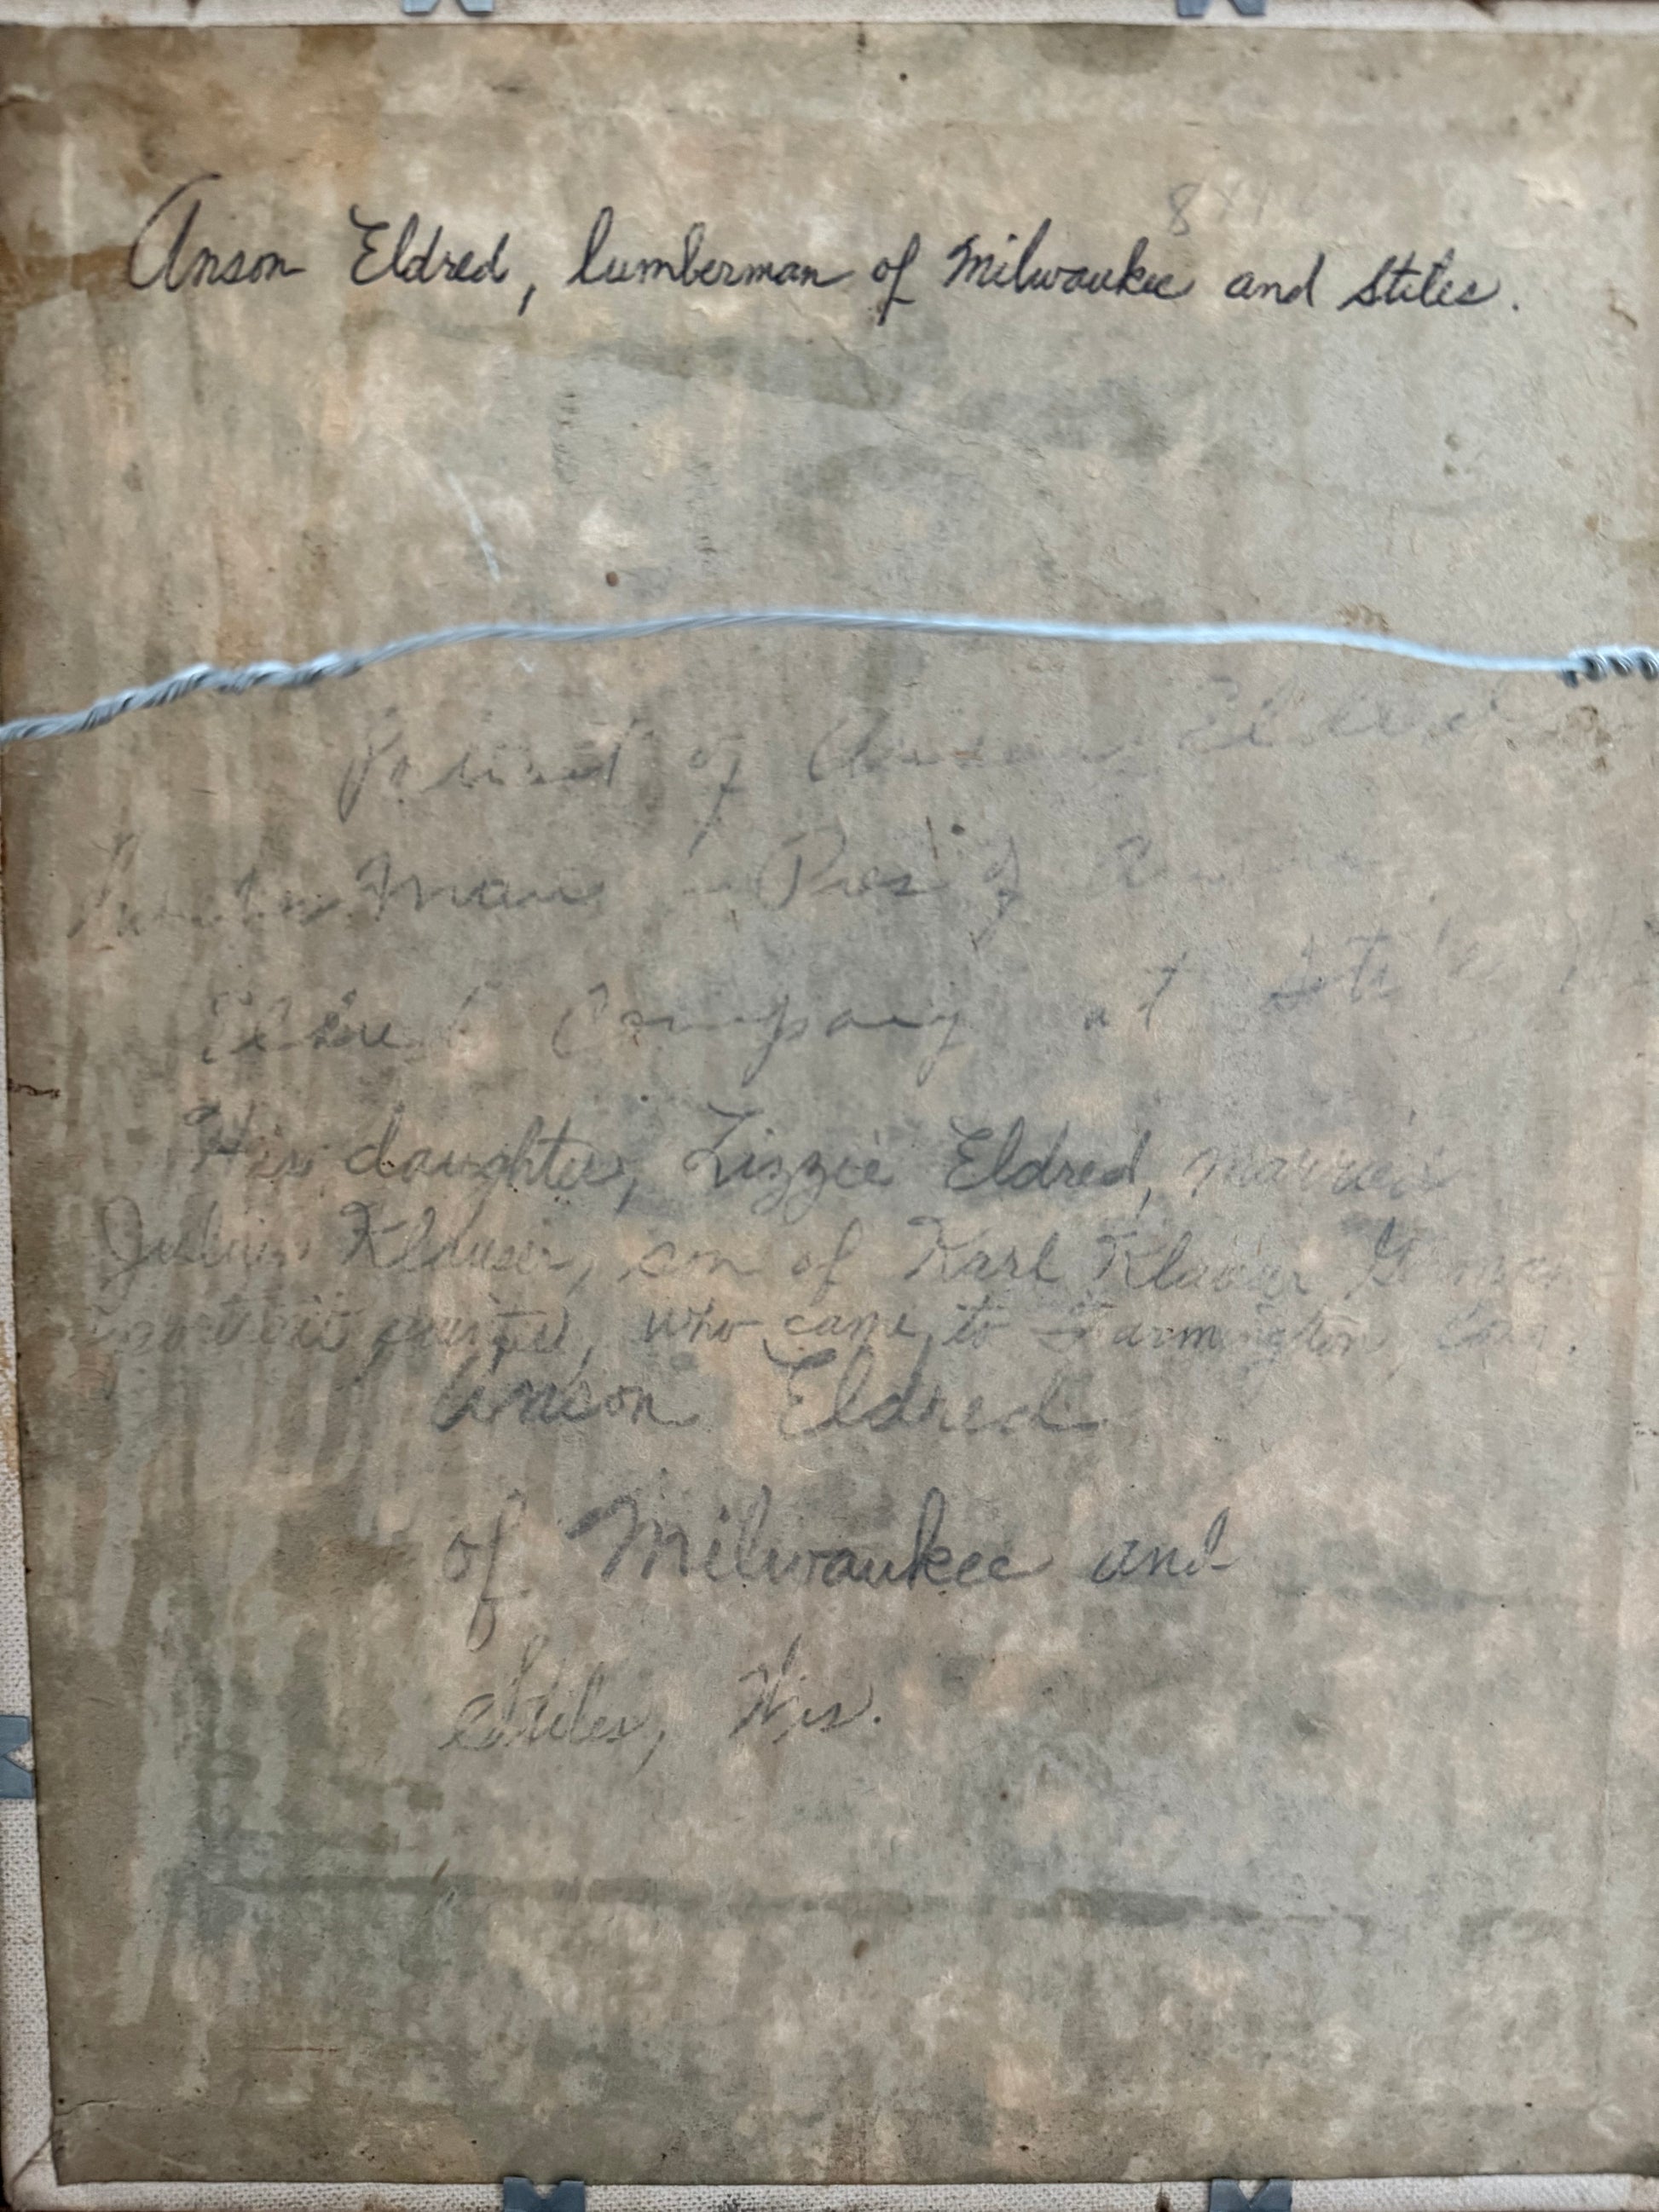 Anson Eldred, lumberman of Milwaukee and Stiles.
of Anson Eldred
Pres of
Eldred Company at
His daughter, Lizzie Eldred, married
Julius Klauser, son of Karl Klauser German
portrait painter, who came to Farmington, Conn.
Anson Eldred
of Milwaukee and
Stiles, Wis.